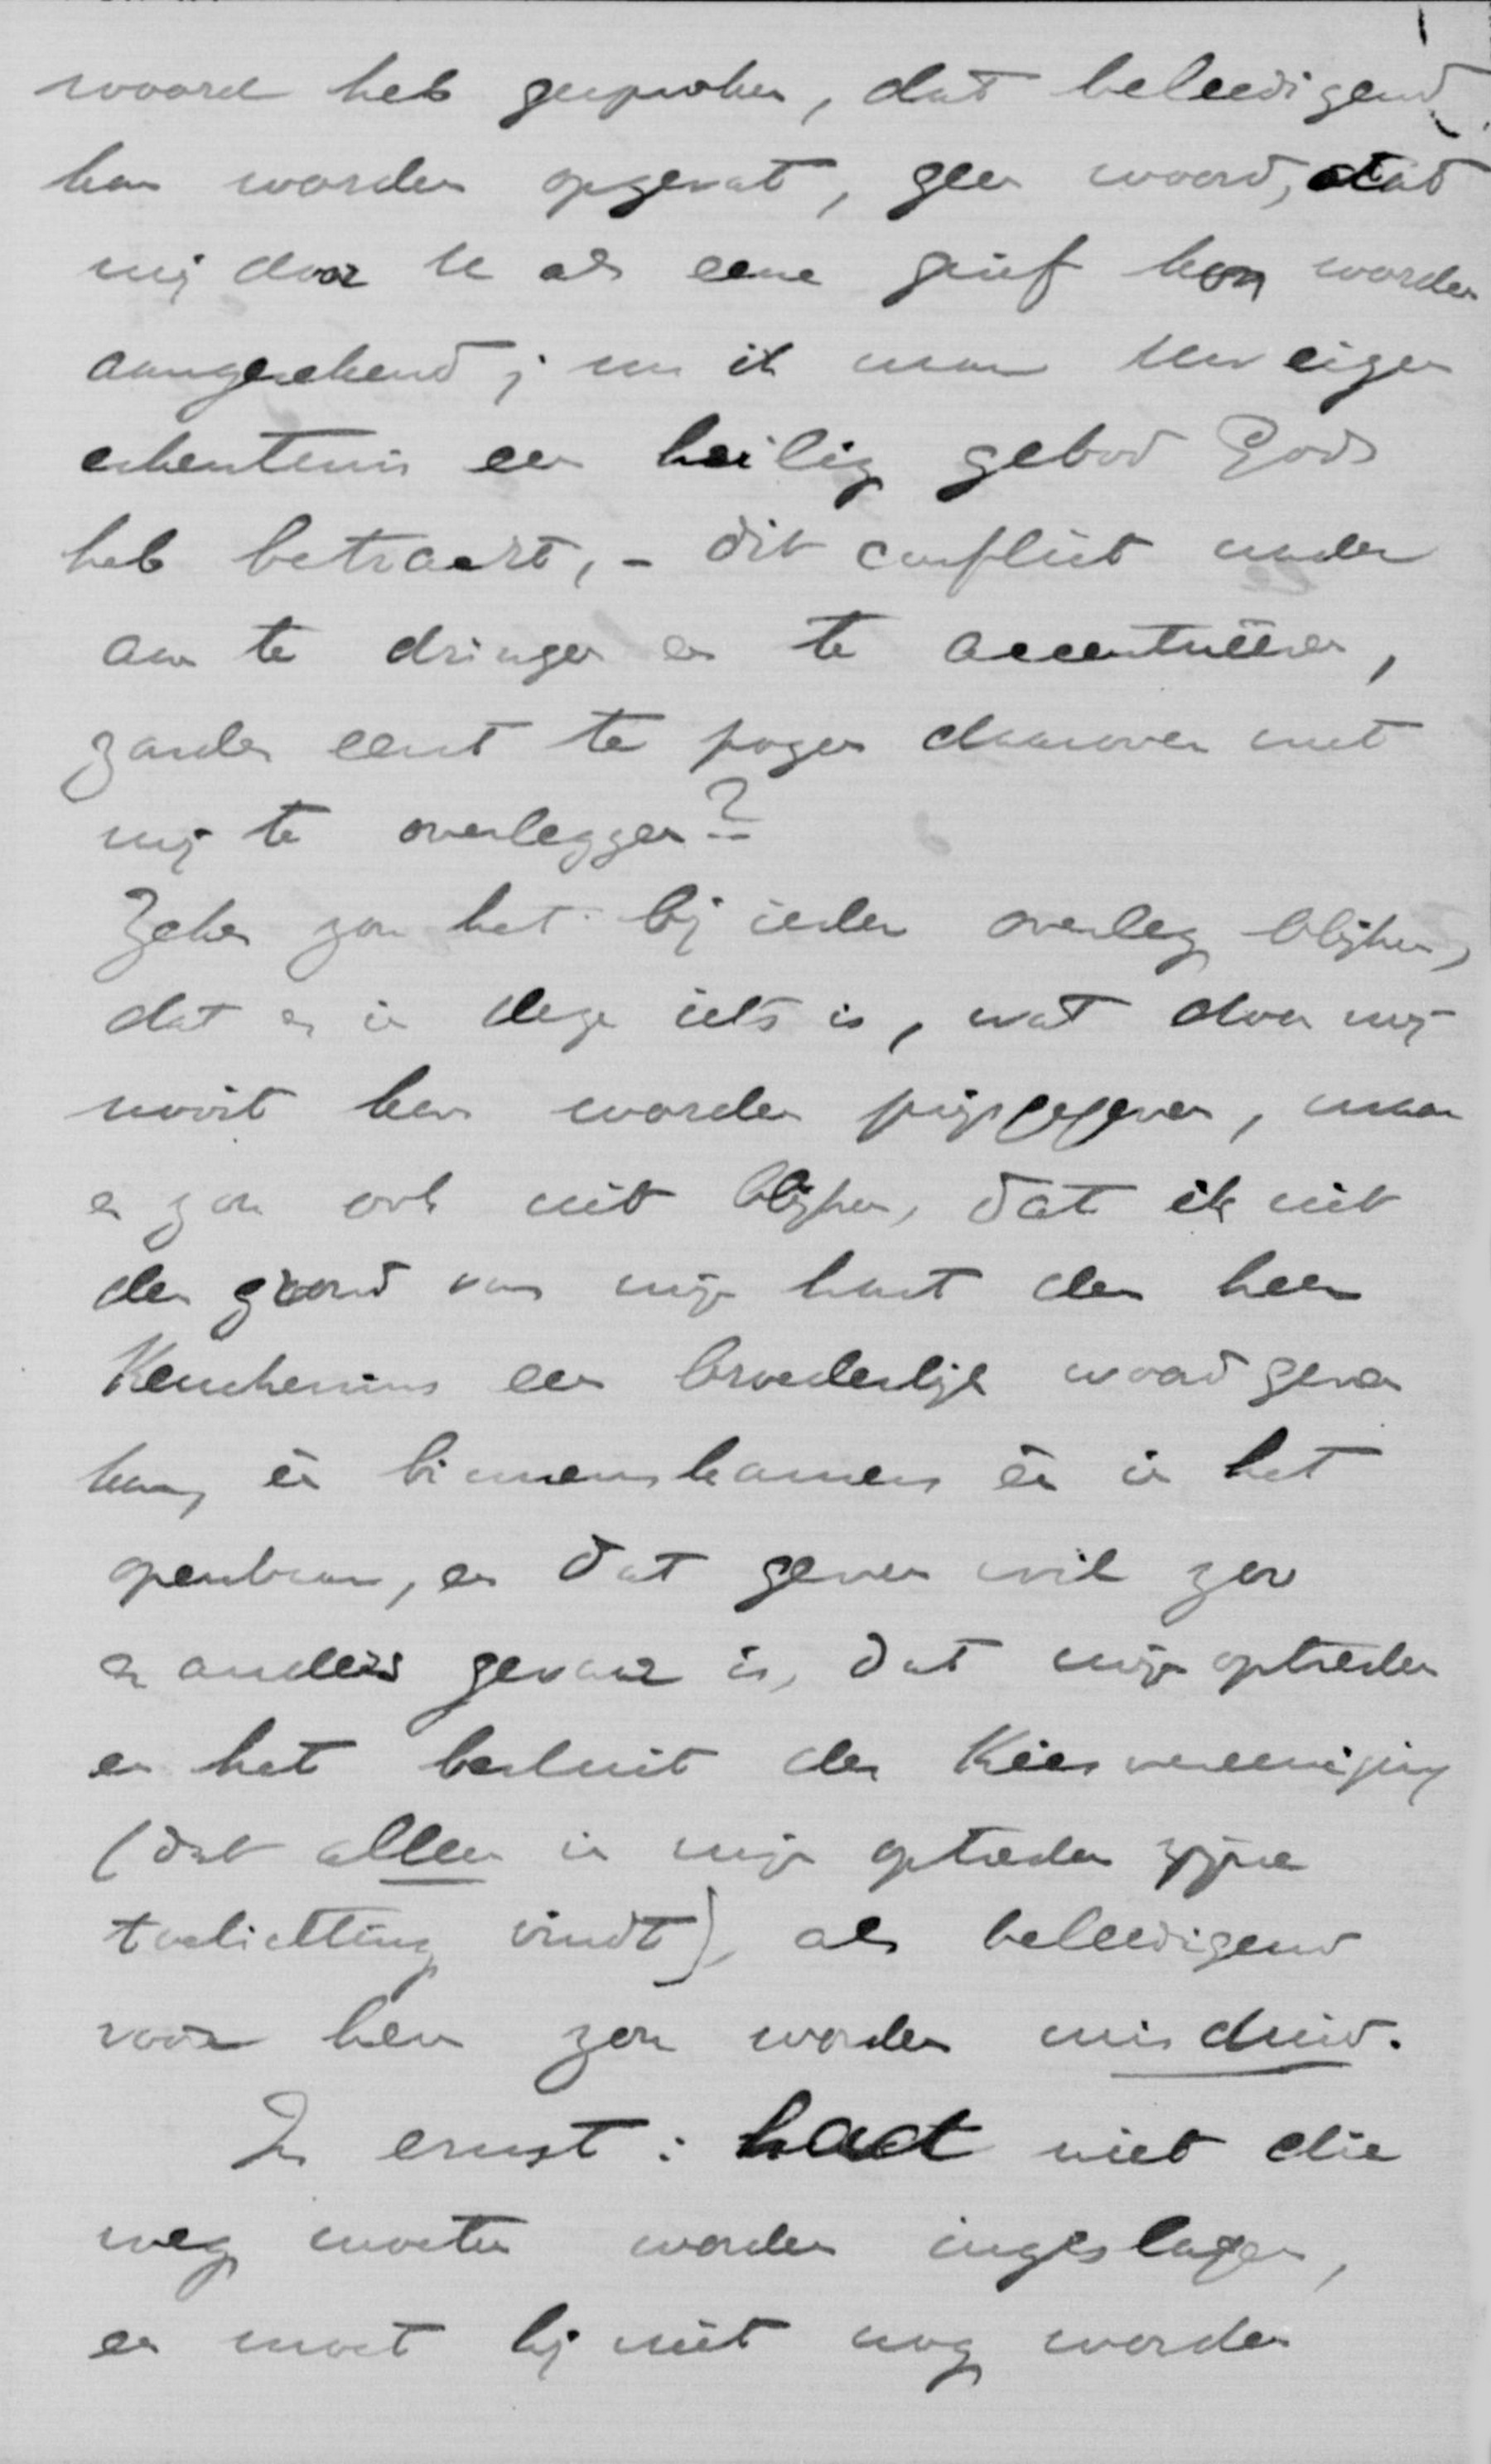 woord heb gesproken, dat beleedigend
kan worden opgevat, geen woord, dat
mij door U als eene grief kon worden
aangerekend; nu ik naar Uw eigen
erkentenis een heilig gebod Gods
heb betracht, - dit conflict nader
aan te dringen en te accentuëeren,
zonder eerst te pogen daarover met
mij te overleggen?
Zeker zou het bij ieder overleg blijken,
dat er in deze iets is, wat door mij
nooit kan worden prijsgegeven, maar
er zou ook uit blijken, dat ik uit
den grond van mijn hart den heer
Keuchenius een broederlijk woord geven
kan, én binnenskamers én in het
openbaar, en dat geven wil zoo
er anders gevaar is, dat mijn optreden
en het besluit der Kiesvereeniging
(dat alleen in mijn optreden zijne
toelichting vindt), als beleedigend
voor hem zou worden misduid.
In ernst: had niet die
weg moeten worden ingeslagen,
en moet hij niet nog worden